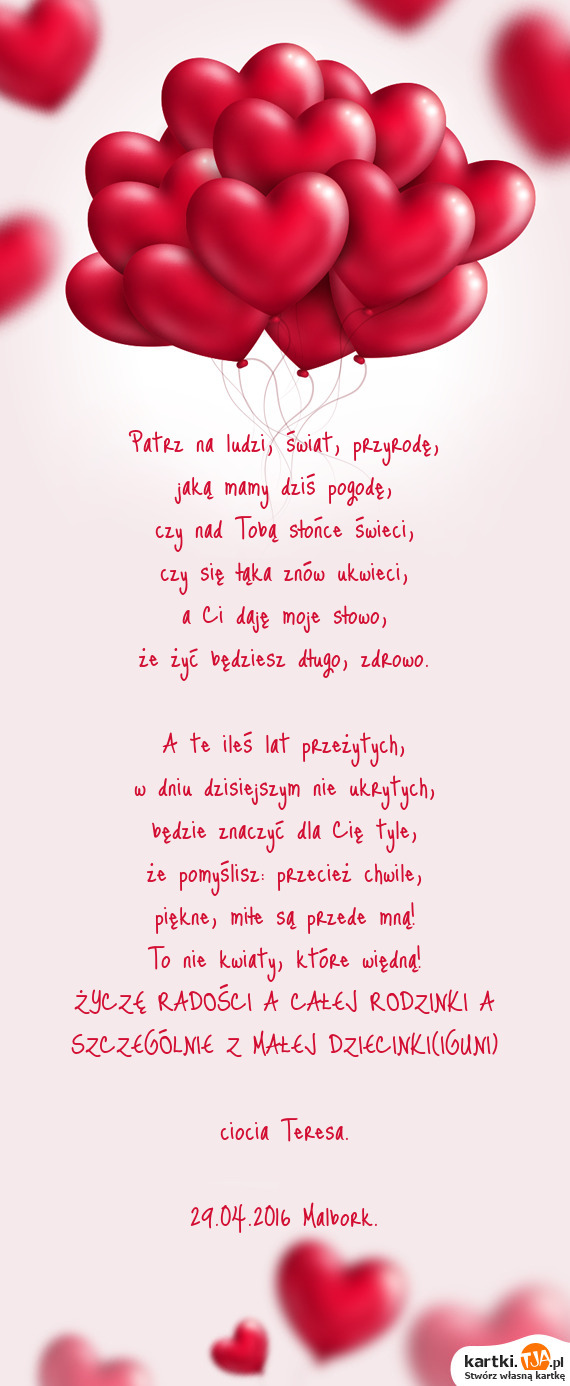 Patrz na ludzi, świat, przyrodę,
jaką mamy dziś pogodę,
czy nad Tobą słońce świeci,
czy się łąka znów ukwieci,
a Ci daję moje słowo,
że żyć będziesz długo, zdrowo.
A te ileś lat przeżytych,
w dniu dzisiejszym nie ukrytych,
będzie znaczyć dla Cię tyle,
że pomyślisz: przecież chwile,
piękne, miłe są przede mną!
To nie kwiaty, które więdną!
ŻYCZĘ RADOŚCI A CAŁEJ RODZINKI A
SZCZEGÓLNIE Z MAŁEJ DZIECINKI(IGUNI)
ciocia Teresa.
29.04.2016 Malbork.
kartki.TJA.pl
Stwórz własną kartkę